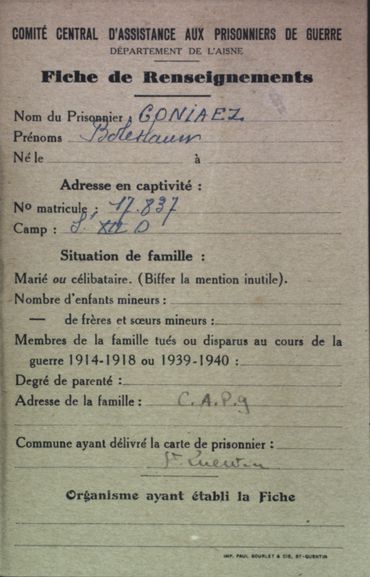 COMITÉ CENTRAL D'ASSISTANCE AUX PRISONNIERS DE GUERRE
DÉPARTEMENT DE L'AISNE
Fiche de Renseignements
Nom du Prisonnier : GONIAEZ
Prénoms Boleslauw
Né le à
Adresse en captivité :
No matricule : 17.837
Camp : S. XII D
Situation de famille :
Marié ou célibataire. (Biffer la mention inutile).
Nombre d'enfants mineurs :
— de frères et sœurs mineurs :
Membres de la famille tués ou disparus au cours de la
guerre 1914-1918 ou 1939-1940 :
Degré de parenté :
Adresse de la famille : C.A.P.g
Commune ayant délivré la carte de prisonnier :
St Quentin
Organisme ayant établi la Fiche
IMP. PAUL BOURLET & CIE, ST-QUENTIN